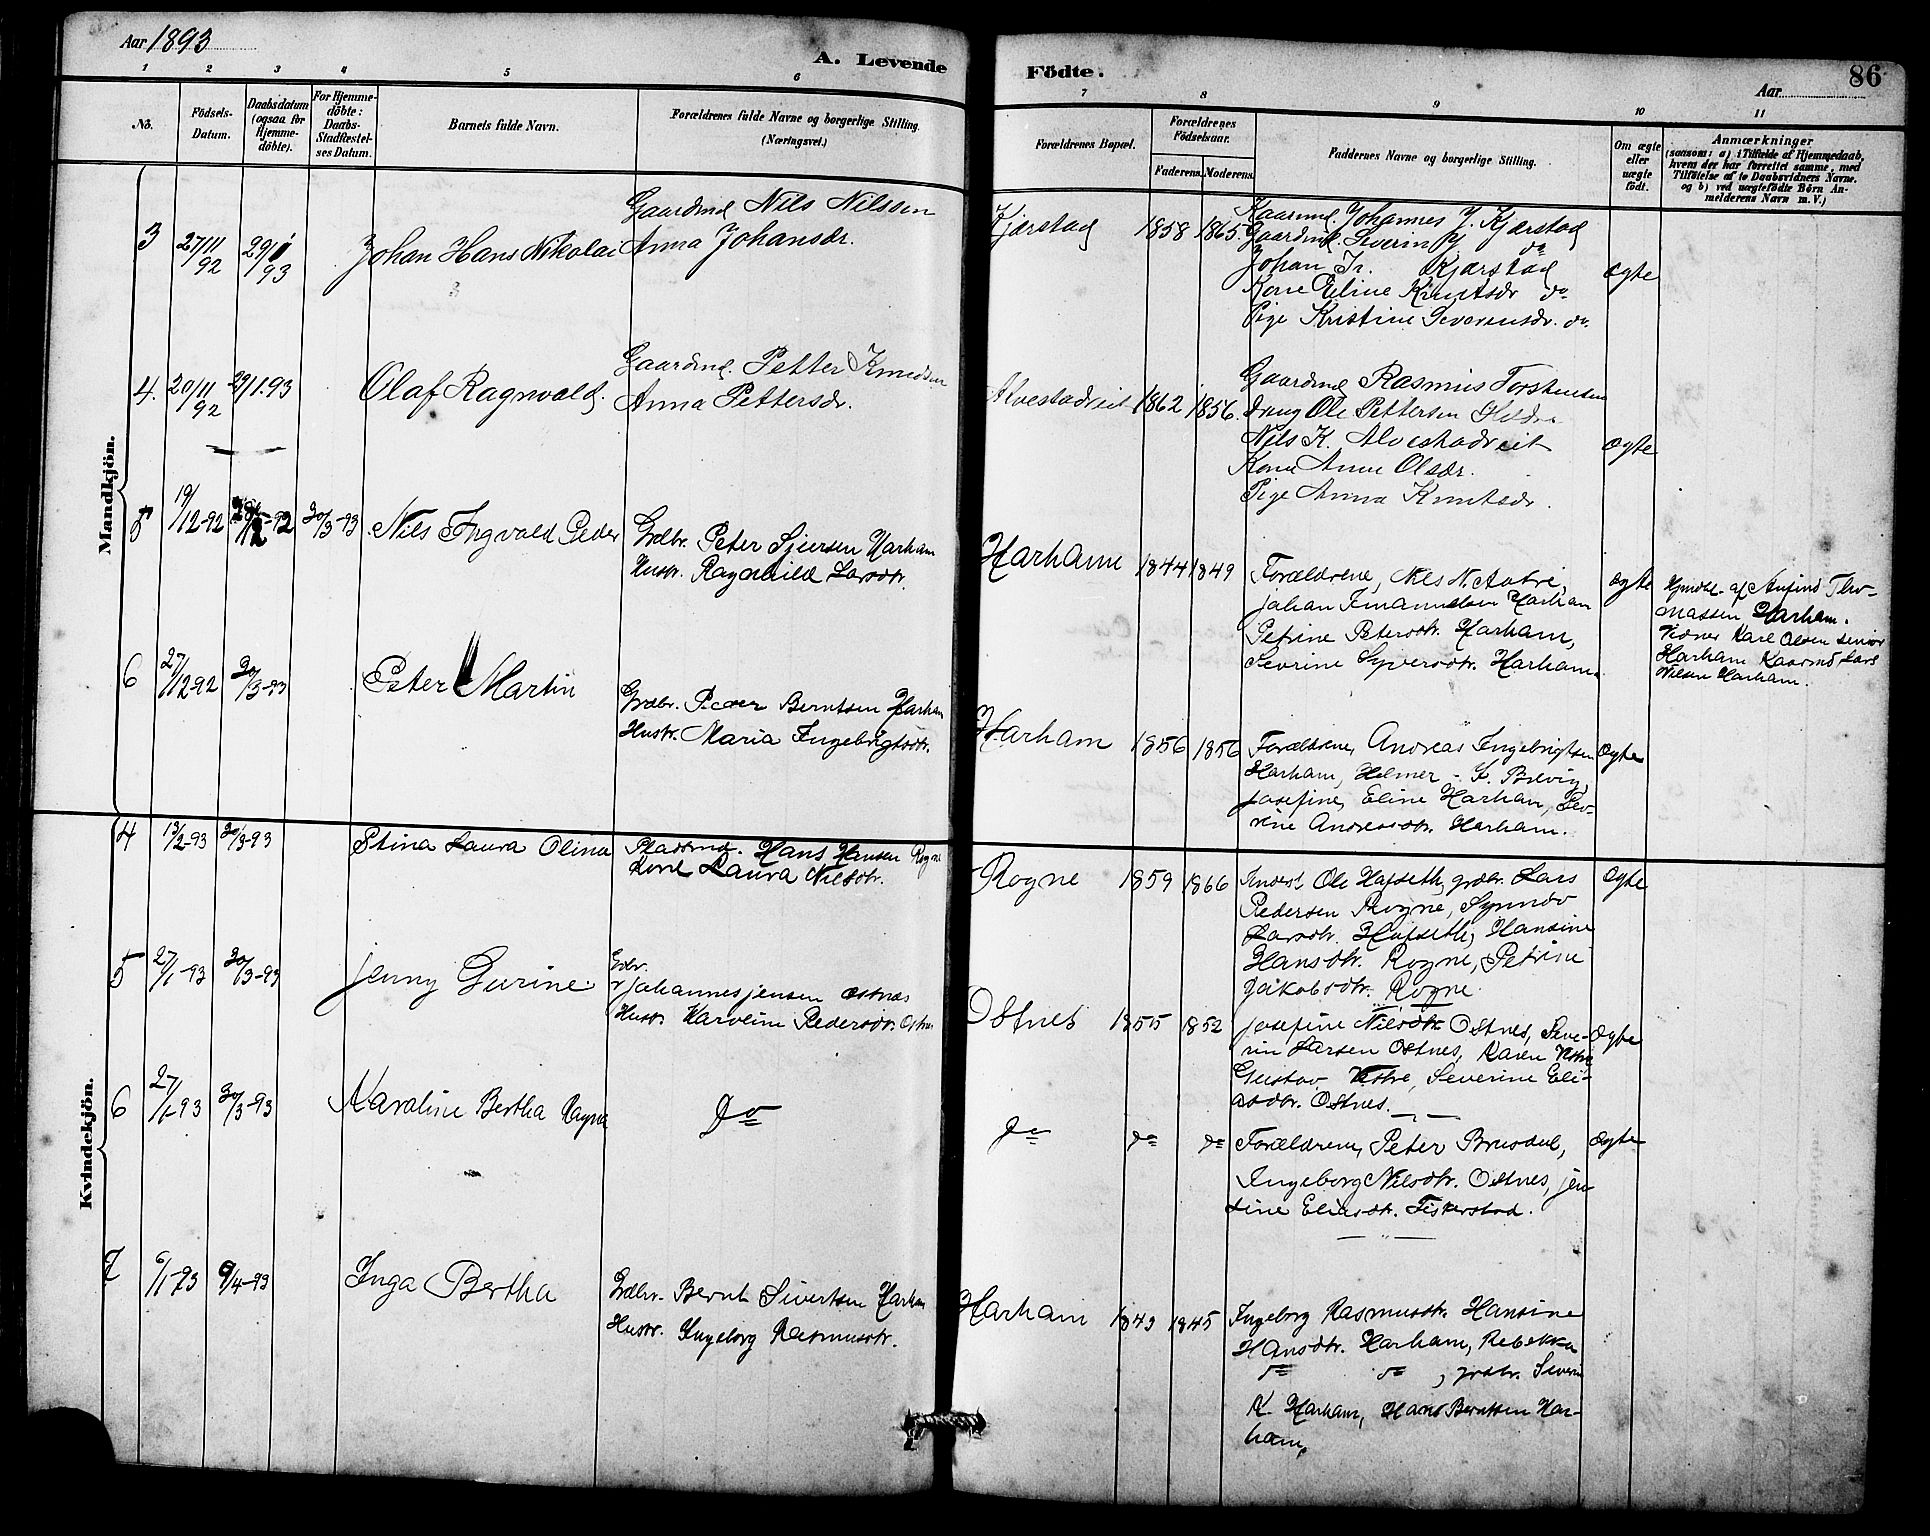 Aar 1893
A. Levende
1 2 3 4 5 6
No.
Födsels-
Datum.
Daabsdatum
(ogsaa for
Hjemme-
döbte).
For Hjemme-
döbte:
Daabs-
Stadfæstel-
ses Datum.
Barnets fulde Navn.
Forældrenes fulde Navne og borgerlige Stilling.
(Næringsvei.)
Mandkjön.
3 27/11 92 29/1 93 Johan Hans Nikolai
Gaardmd Nils Nilssen
Anna Johansdr.
4. 20/11 92 29/1.93 Olaf Ragnvald.
Gaardmd. Petter Knudsen
Anna Pettersdr.
5 19/12-92 30/3-93 Nils Ingvald Peder
Grdbr. Peter Sjursen Harham
Hustr. Ragnhild Larsdtr.
6 27/12-92 30/3-93 Peter Martin
Grdbr. Peder Berntsen Harham
Hustr. Maria Ingebrigtsdtr.
Kvindekjön.
4 13/2-93 30/3-93 Stina Laura Olina
Pladsmd. Hans Hansen Rogne
Kone Laura Nilsdtr.
5 27/1-93 30/3-93 Jenny Gurine
Gdbr.
Johannes Jensen Østnes
Hustr. Karoline Pedersdtr. Ostnes
6 27/1-93 30/3-93 Karoline Bertha Ragna do
7 6/1-93 9/4-93 Inga Bertha
Grdbr. Bernt Sivertsen Harham
Hustr. Ingeborg Rasmusdtr.
Födte.
Aar
86
7 8 9 10 11
Forældrenes Bopæl.
Forældrenes
Födselsaar.
Faderens. Moderens.
Faddernes Navne og borgerlige Stilling.
Om ægte
eller
uægte
födt.
Anmærkninger
(saasom: a) i Tilfælde af Hjemmedaab,
hvem der har forrettet samme, med
Tilföielse af to Daabsvidners Navne.
og b) ved uægtefödte Börn An-
melderens Navn m. V.)
Kjærstad 1858 1865
Kaarmd. Johannes J. Kjærstad
Gaardmd. Severin do
Johan Kjærstad
Kone Eline Knutsdr do
Pige Kristine Severinsdr. do.
ægte
Alvestadreit 1862 1856.
Gaardmd Rasmus Torstensen
Dreng Ole Pettersen
Nils K. Alvestadreit
Kone Anne Olsdr.
Pige Anna Knutsdr.
ægte
Harham 1844 1849
Forældrene, Nils N.
Johan Harham
Petrine Petersdtr. Harham,
Sevrine Syversdtr. Harham.
ægte
Hjmdbt. af Anfind Tho-
massen Harham.
Vidner Karl Olsen senior
Harham Kaarmd Lars
Nilsen Harham.
Harham 1856 1856
Forældrene, Andreas Ingebrigtsen
Harham, Helmer
Josefine, Eline Harham, Sev-
rine Andreasdtr. Harham.
Ægte
Rogne 1859 1866
Inderst Ole Hafseth, grdbr. Lars
Pedersen Rogne, Synnøv
Larsdtr. Hafseth, Hansine
Hansdtr. Rogne, Petrine
Jakobsdtr. Rogne.
Ægte
Ostnes 1855 1852
Josefine Nilsdtr Ostnes, Seve-
rin Larsen Ostnes, Karen Vestre
Gustav Vestre, Severine Eli-
asdtr. Ostnes.
Ægte
do do do
Forældrene, Peter Brusdal,
Ingeborg Nilsdtr. Ostnes, Jen-
sine Eliasdtr. Fiskerstad.
Ægte
Harham 1843 1845
Ingeborg Rasmusdtr. Hansine
Hansdtr. Harham, Rebekka
do do, grdbr. Severin
K. Harham, Hans Berntsen Har-
ham.